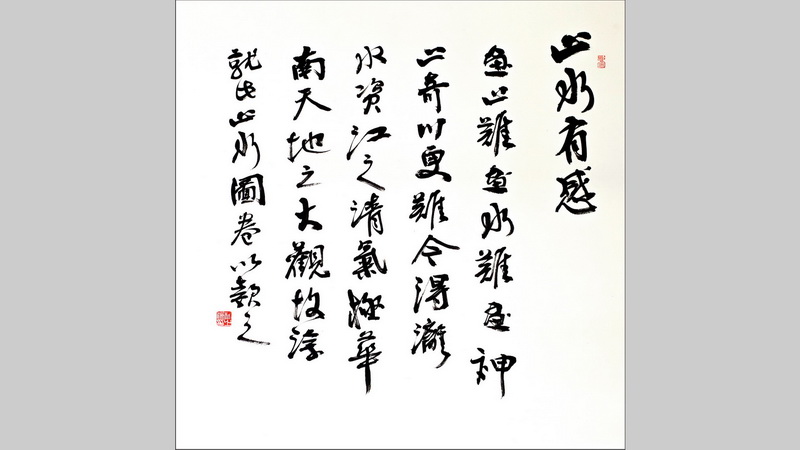 山水有感
畫山難畫水難畫神
山奇川更難今得灕
水資江之清氣極華
南天地之大觀故
就此山水圖卷以之